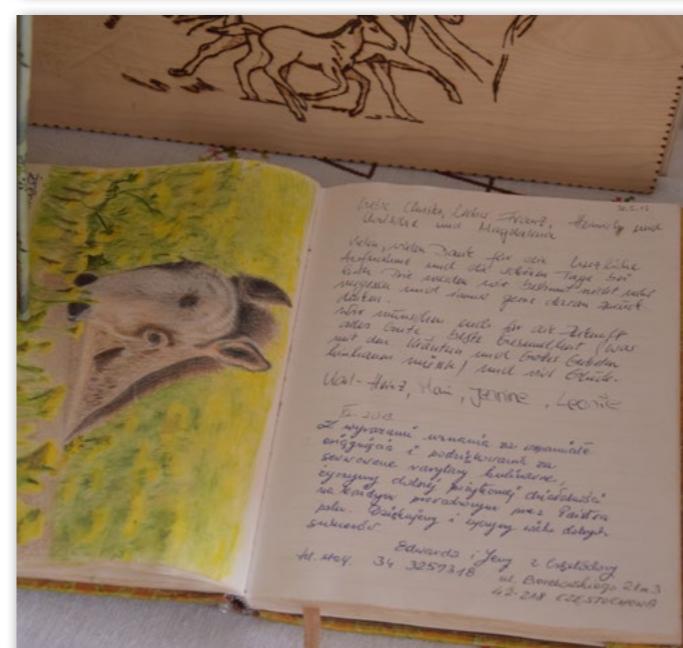 Liebe Christa, lieber Franz, Henrik und
und Magdalena
Vielen, vielen Dank für die herzliche
Aufnahme und die schönen Tage bei
Euch. Die werden wir bestimmt nicht mehr
vergessen und immer gerne daran zurück
denken.
Wir wünschen euch für die Zukunft
alles Gute, beste Gesundheit (was
mit den Kräutern und Gottes
müsste) und viel Glück.
Karl-Heinz, Jannine, Leonie
2013
Z wyrazami uznania za wspaniałe
osiągnięcia i podziękowania za
serwowane rarytasy kulinarne,
życzymy dalszej pożytecznej działalności
na każdym prowadzonym przez Państwa
polu. Dziękujemy i życzymy wielu dobrych
Edwarda i Jerzy z Częstochowy
tel. stac. 34 3257318 ul. 21 m 3
42-218 CZĘSTOCHOWA